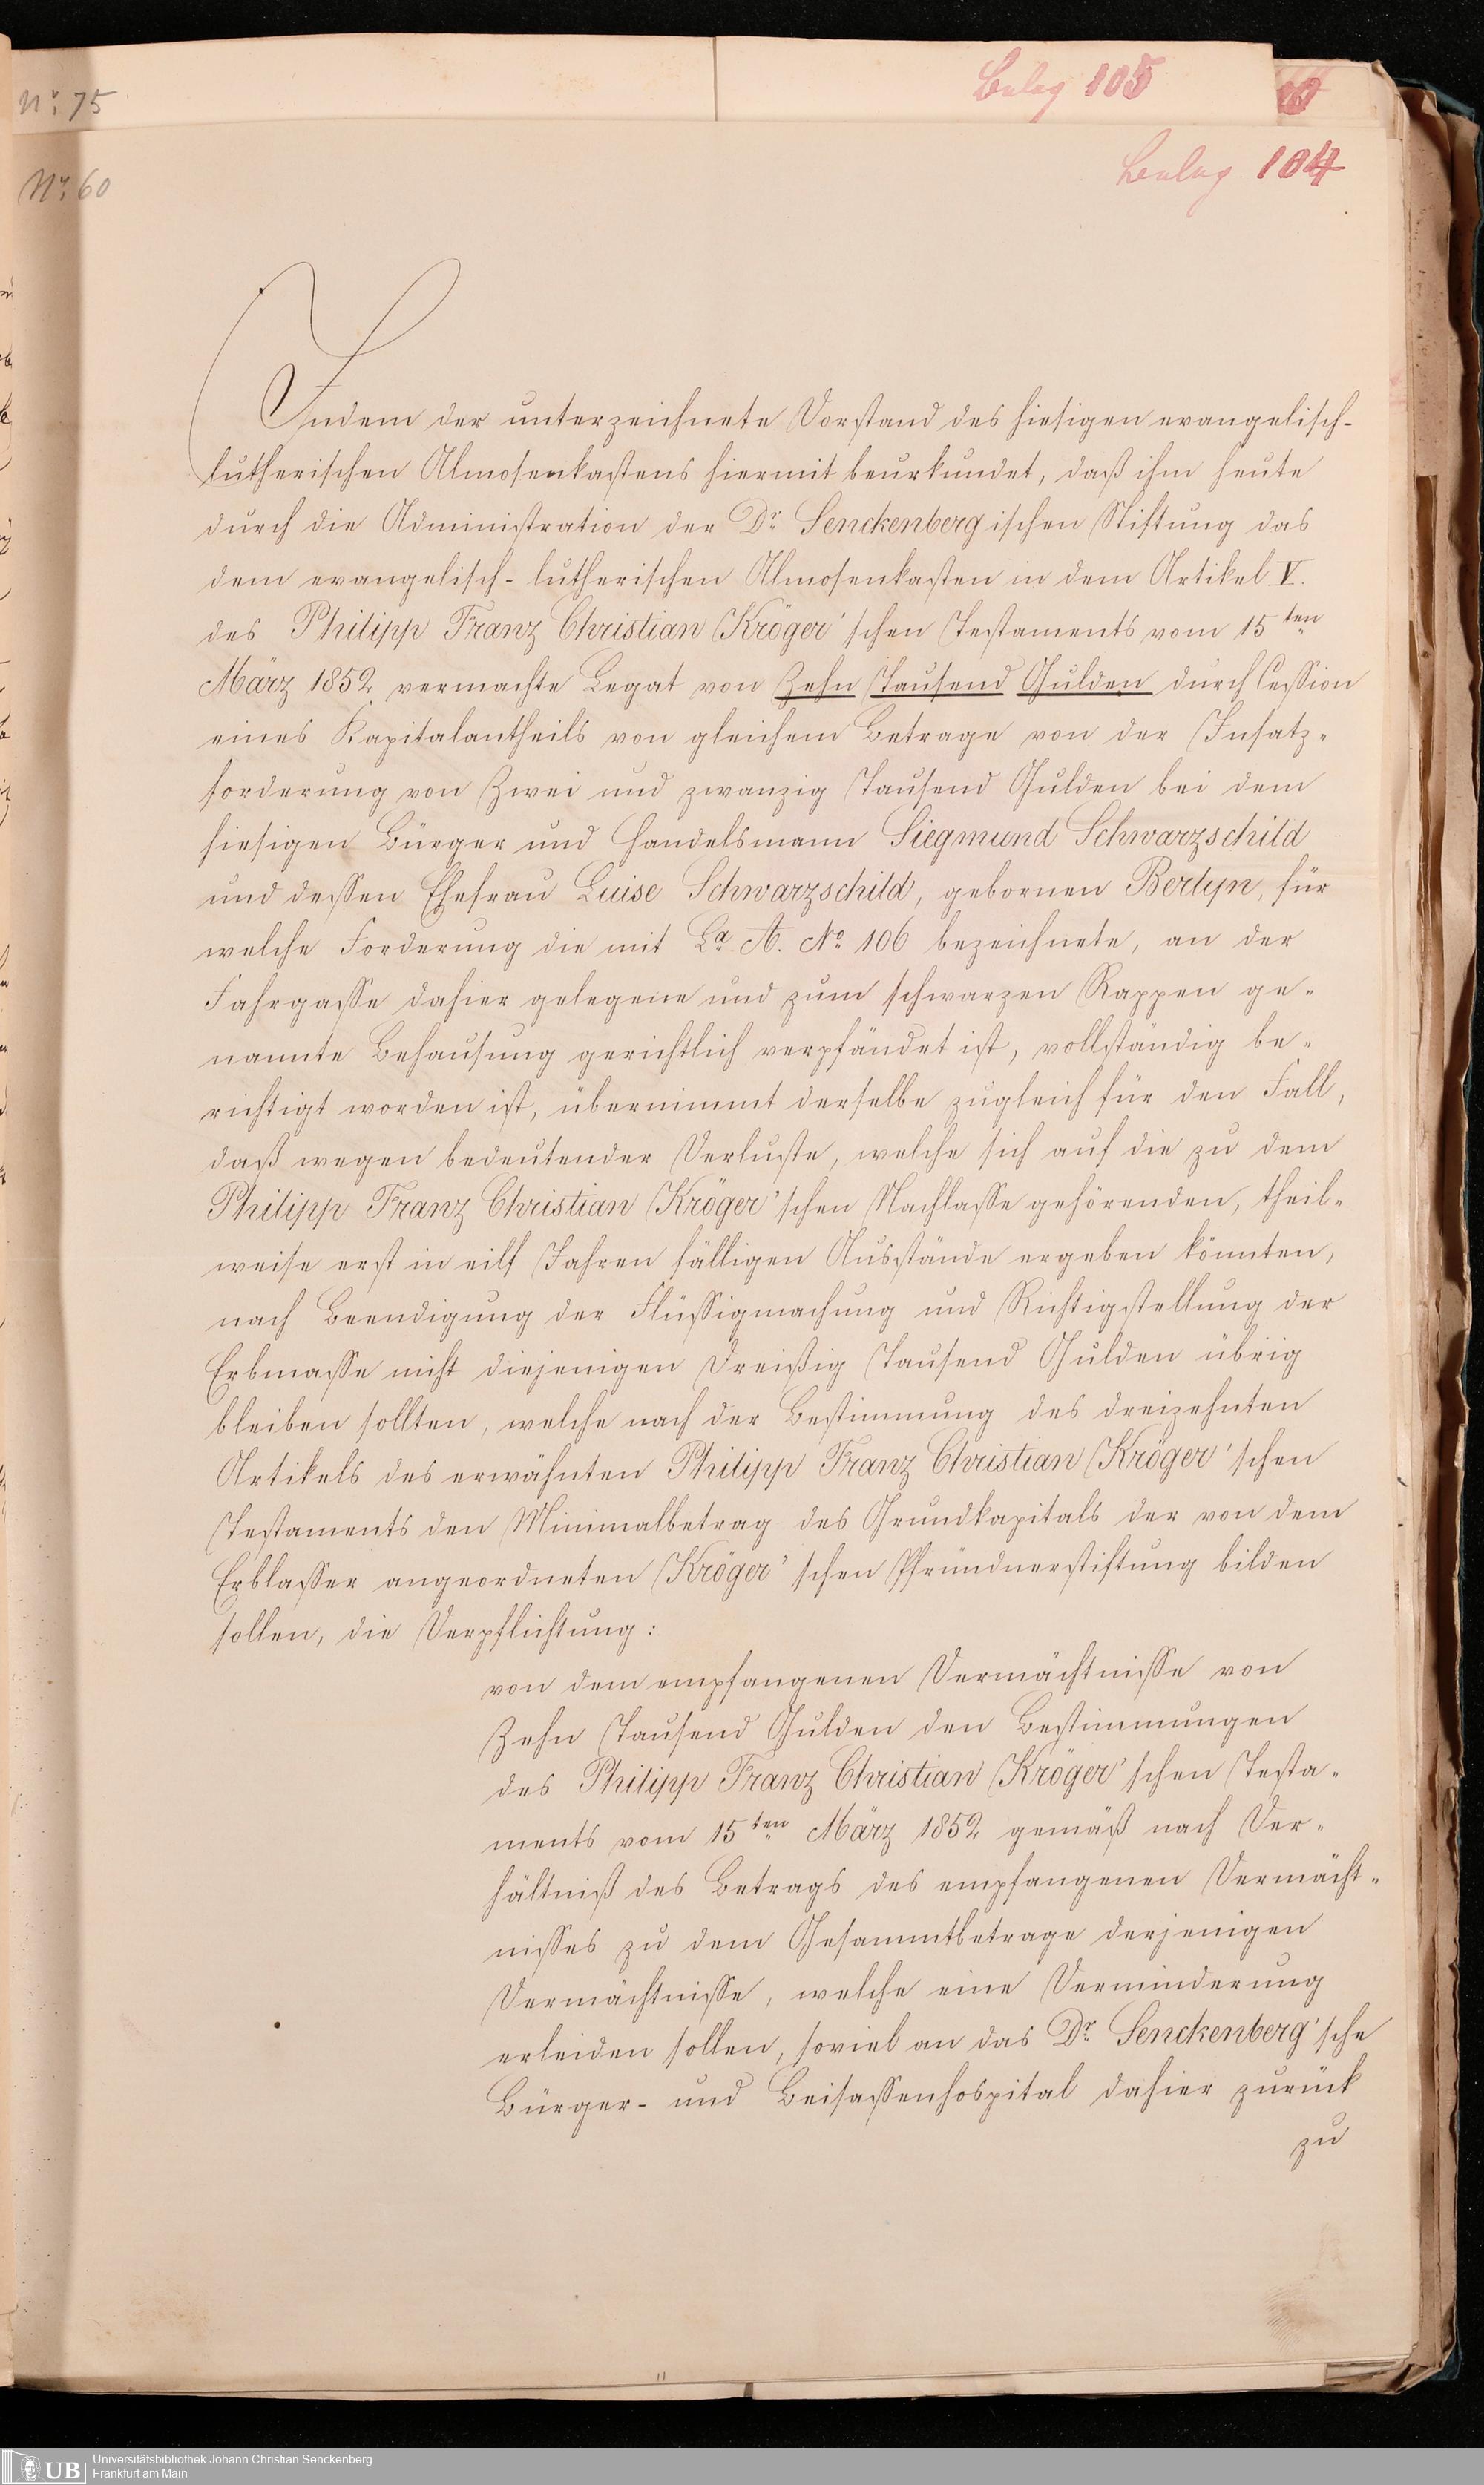 Nr. 75
Beleg 105
Nr. 60
Beleg 104
Indem der unterzeichnete Vorstand des hiesigen evangelisch-
lutherischen Almosenkastens hiermit beurkundet, daß ihm heute
durch die Administration der Dr. Senckenbergischen Stiftung das
dem evangelisch-lutherischen Almosenkasten in dem Artikel V.
des Philipp Franz Christian Kröger'schen Testaments vom 15ten
März 1852 vermachte Legat von Zehn Tausend Gulden durch Cession
eines Kapitalantheils von gleichem Betrage von der Insatz-
forderung von Zwei und zwanzig Tausend Gulden bei dem
hiesigen Bürger und Handelsmann Siegmund Schwarzschild
und dessen Ehefrau Luise Schwarzschild, gebornen Berlyn, für
welche Forderung die mit La. A. No. 106 bezeichnete, an der
Fahrgasse dahier gelegene und zum schwarzen Rappen ge-
nannte Behausung gerichtlich verpfändet ist, vollständig be-
richtigt worden ist, übernimmt derselbe zugleich für den Fall,
daß wegen bedeutender Verluste, welche sich auf die zu dem
Philipp Franz Christian Kröger'schen Nachlasse gehörenden, theil-
weise erst in eilf Jahren fälligen Ausstände ergeben könnten,
nach Beendigung der Flüssigmachung und Richtigstellung der
Erbmasse nicht diejenigen Dreißig Tausend Gulden übrig
bleiben sollten, welche nach der Bestimmung des dreizehnten
Artikels des erwähnten Philipp Franz Christian Kröger'schen
Testaments den Minimalbetrag des Grundkapitals der von dem
Erblasser angeordneten Kröger'schen Pfründnerstiftung bilden
sollen, die Verpflichtung:
von dem empfangenen Vermächtnisse von
Zehn Tausend Gulden den Bestimmungen
des Philipp Franz Christian Kröger'schen Testa-
ments vom 15ten März 1852 gemäß nach Ver-
hältniß des Betrags des empfangenen Vermächt-
nisses zu dem Gesammtbetrage derjenigen
Vermächtnisse, welche eine Verminderung
erleiden sollen, soviel an das Dr. Senckenberg'sche
Bürger- und Beisassenhospital dahier zurück
zu
UB
Universitätsbibliothek Johann Christian Senckenberg
Frankfurt am Main